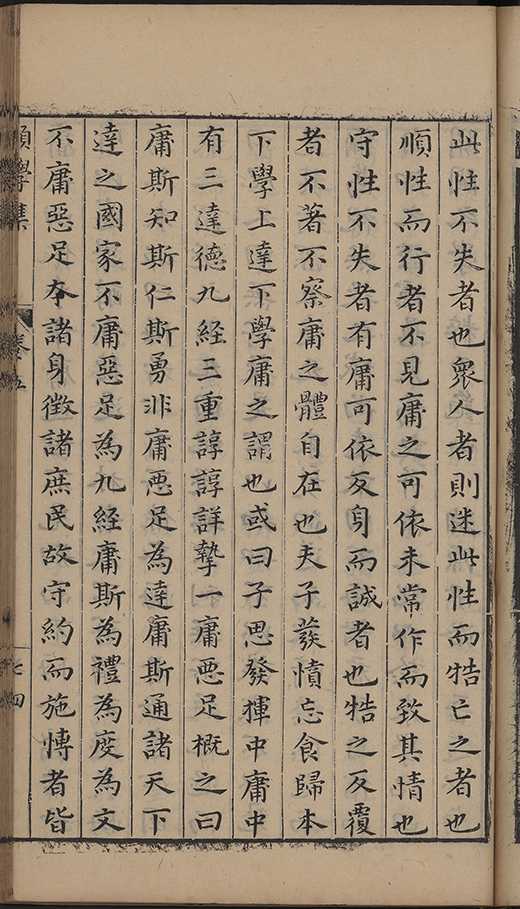 此性不失者也衆人者則迷此性而牿亡之者也
順性而行者不見庸之可依未常作而致其情也
守性不失者有庸可依反身而誠者也牿之反覆
者不著不察庸之體自在也夫子發憤忘食歸本
下學上達下學庸之謂也或曰子思發揮中庸中
有三達德九經三重諄諄詳摯一庸惡足概之曰
庸斯知斯仁斯勇非庸惡足為達庸斯通諸天下
達之國家不庸惡足為九經庸斯為禮為度為文
不庸惡足夲諸身徴諸庶民故守約而施慱者皆
學集
卷五
七四